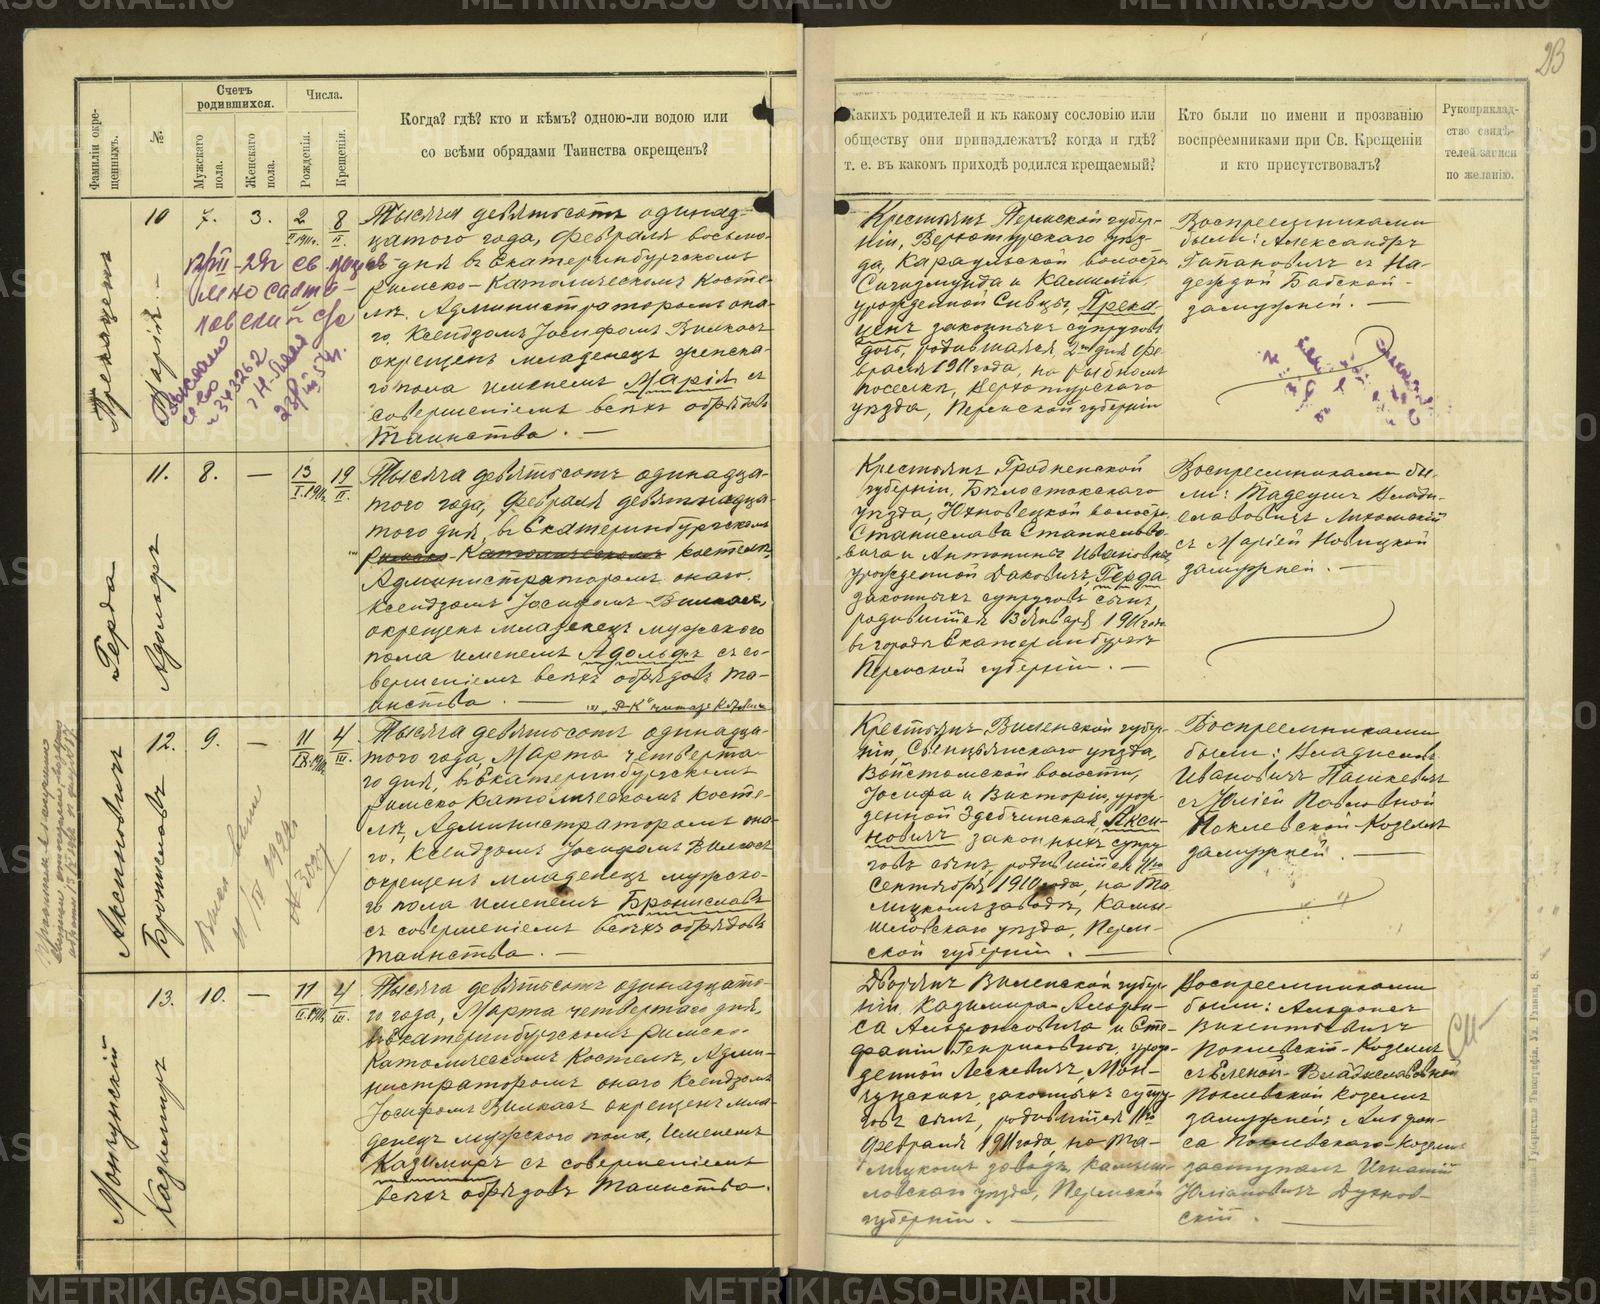 23
Фамиліи окре-
щенныхъ.
№
Счетъ
родившихся.
Мужскаго
пола.
Женскаго
пола.
Числа.
Рожденія.
Крещенія.
Когда? гдѣ? кто и кѣмъ? одною-ли водою или
со всѣми обрядами Таинства окрещенъ?
Какихъ родителей и къ какому сословію или
обществу они принадлежатъ? когда и гдѣ?
т. е. въ какомъ приходѣ родился крещаемый?
Кто были по имени и прозванію
воспреемниками при Св. Крещеніи
и кто присутствовалъ?
Рукоприклад-
ство свидѣ-
телей записи
по желанію.
Марія.
10
7.
3.
2
II 1911 г.
8
II.
Тысяча девятьсотъ одинад-
цатого года, Февраля восьмо-
го дня въ Екатеринбургскомъ
Римско-Католическомъ Косте-
лѣ, Администраторомъ она-
го, Ксендзомъ Іосифомъ Вилкасъ
окрещенъ младенецъ женска-
го пола именемъ Марія съ
совершеніемъ всѣхъ обрядовъ
Таинства. —
Крестьянъ Пермской губер-
ніи, Верхотурскаго уѣз-
да, Караульской волости,
Сигизмунда и Камиліи,
урожденной Сивцы, Према-
ценъ законныхъ супруговъ
дочь, родившаяся 2го дня Фе-
враля 1911 года, на Рыбномъ
поселкѣ, Верхотурскаго
уѣзда, Пермской губерніи
Воспреемниками
были: Александръ
Гапановичъ съ На-
деждой Бабской
замужней. —
Герда
Адольфъ
11.
8.
—
13
I. 1911 г.
19
II.
Тысяча девятьсотъ одинадца-
того года, Февраля девятнадца-
того дня, въ Екатеринбургскомъ
Римско-Католическомъ костелѣ,
Администраторомъ онаго,
Ксендзомъ Іосифомъ Вилкасъ,
окрещенъ младенецъ мужского
пола именемъ Адольфъ съ со-
вершеніемъ всѣхъ обрядовъ Та-
инства. —
Крестьянъ Гродненской
губерніи, Бѣлостокскаго
уѣзда, Юхновецкой волости,
Станислава Станиславо-
вича и Антонины Ивановны,
урожденной Даковичъ, Герда
законныхъ супруговъ сынъ,
родившійся 13 Января 1911 года
въ городѣ Екатеринбургѣ
Пермской губерніи. —
Воспреемниками бы-
ли: Тадеушъ Влади-
славовичъ
съ Маріей Новицкой
замужней. —
Аксиновичъ
Брониславъ
12.
9.
—
11
IX. 1910 г.
4
III.
Тысяча девятьсотъ одинадца-
того года, Марта четверта-
го дня, въ Екатеринбургскомъ
Римско Католическомъ Косте-
лѣ, Администраторомъ она-
го, Ксендзомъ Іосифомъ Вилкасъ
окрещенъ младенецъ мужско-
го пола именемъ Брониславъ
съ совершеніемъ всѣхъ обрядовъ
Таинства. —
Крестьянъ Виленской губер-
ніи, Свенцянскаго уѣзда,
Войстомской волости,
Іосифа и Викторіи, урож-
денной Здебчинская, Акси-
новичъ законныхъ супру-
говъ сынъ, родившійся 11го
Сентября 1910 года, на Та-
лицкомъ заводѣ, Камы-
шловскаго уѣзда, Перм-
ской губерніи. —
Воспреемниками
были: Владиславъ
Ивановичъ Пашкевичъ
съ Юліей Павловной
Поклевской-Козеллъ
замужней. —
Мончунскій
Казимиръ
13.
10.
—
11
II. 1911 г.
4
III.
Тысяча девятьсотъ одинадцато-
го года, Марта четвертаго дня,
въ Екатеринбургскомъ Римско-
Католическомъ Костелѣ, Адми-
нистраторомъ онаго Ксендзомъ
Іосифомъ Вилкасъ окрещенъ мла-
денецъ мужского пола, именемъ
Казимиръ съ совершеніемъ
всѣхъ обрядовъ Таинства.
Дворянъ Виленской губер-
ніи Казимира-Альфон-
са Альфонсовича и Сте-
фаніи Генриховны, урож-
денной Лескевичъ, Мон-
чунскихъ, законныхъ супру-
говъ сынъ, родившійся 11го
Февраля 1911 года, на Та-
лицкомъ заводѣ, Камыш-
ловскаго уѣзда, Пермской
губерніи. —
Воспреемниками
были: Альфонсъ
Викентьевичъ
Поклевскій-Козеллъ
съ Еленой-Владиславовной
Поклевской Козеллъ
замужней; Альфон-
са Поклевскаго-Козеллъ
заступалъ Игнатій
Юліановичъ Духнов-
скій. —
METRIKI.GASO-URAL.RU